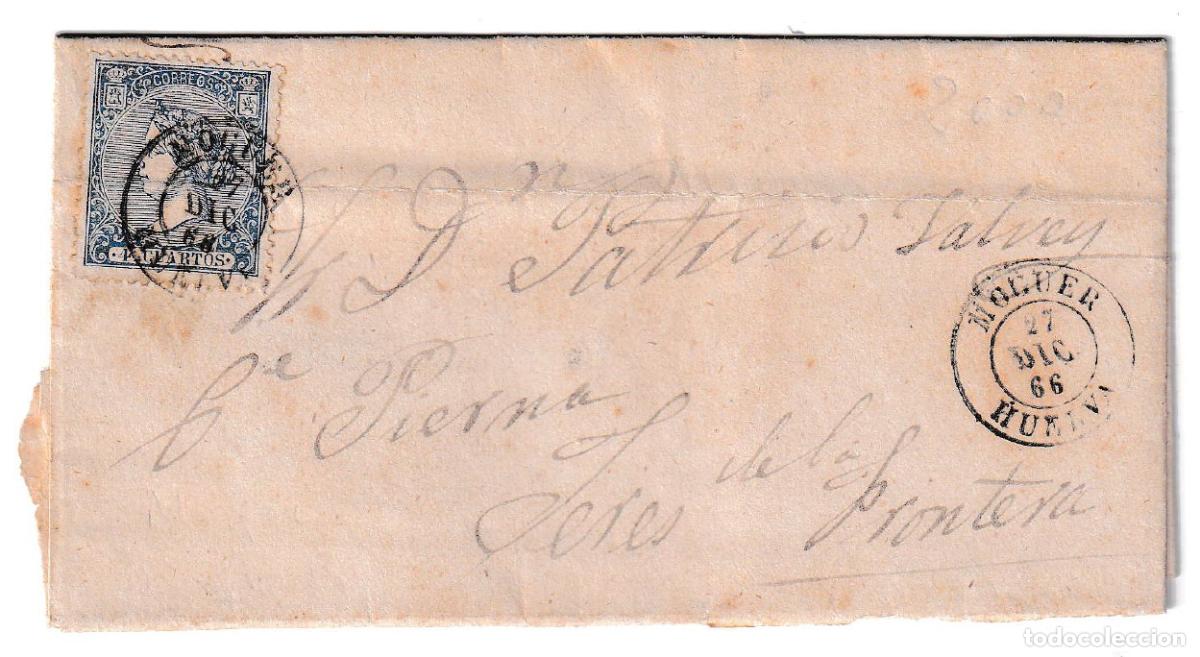 2000
CORREOS
MOGUER
27
DIC
66
HUELVA
4 CUARTOS
S D.n Patricio Salvey
C.e Pierna
Jeres de la Frontera
MOGUER
27
DIC
66
HUELVA
todocoleccion